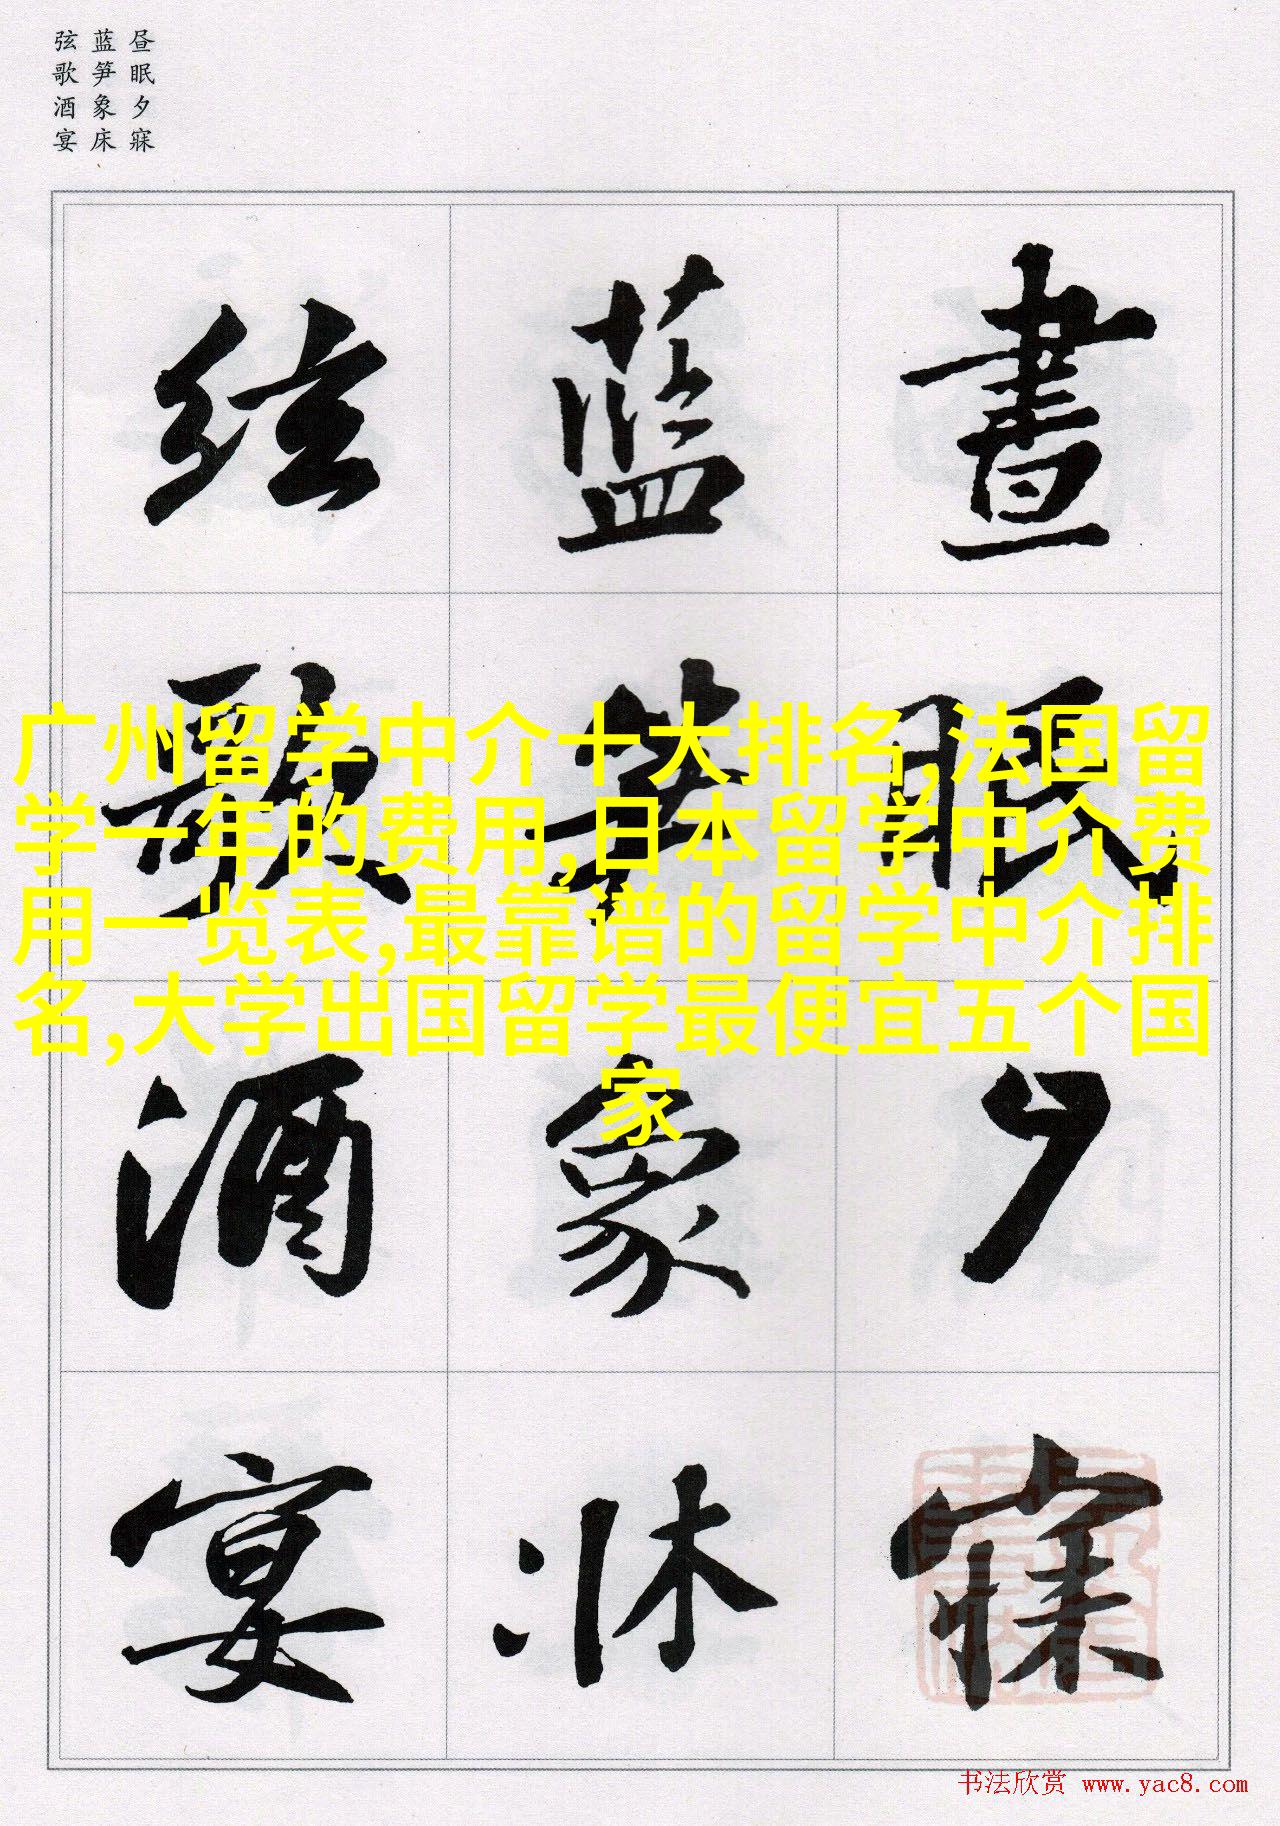 昼眠夕寐
蓝笋象床
弦歌酒宴
晝眠夕寐
蓝笋象床
弦歌酒宴
广州留学中介十大排名,法国留
学一年的费用,日本留学中介费
用一览表,最靠谱的留学中介排
名,大学出国留学最便宜五个国
家
书法欣赏 www.yac8.com